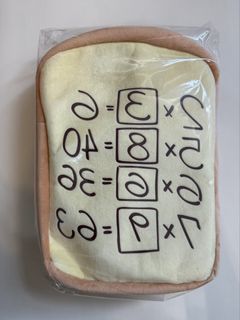 2×3=6
5×8=40
6×6=36
7×9=63